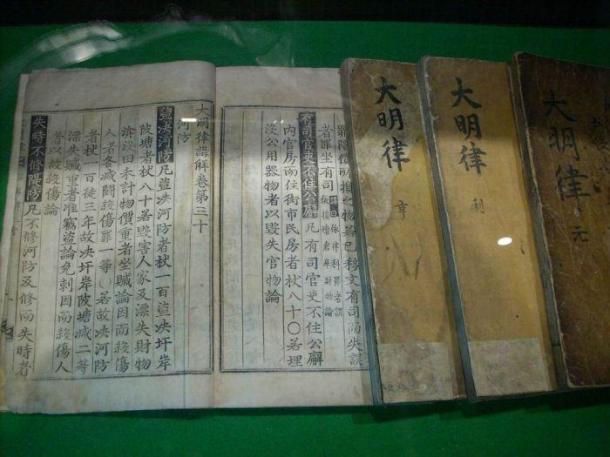 大明律 元
大明律 利
大明律
所損之物若已移文有司而失誤
者罪坐有司
有司官吏不住公廨 凡有司官吏不住公廨
内官房而住街市民房者杖八十○若埋
没公用器物者以毁失官物論
大明律講解卷第三十
河防
盜决河防 凡盜决河防者杖一百盜决圩岸
陂塘者杖八十若毁害人家及漂失財物
渰没田禾計物價重者坐贓論因而殺傷
人者各减鬪殺傷罪一等○若故决河防
者杖一百徒三年故决圩岸陂塘减二等
漂失贓重者准竊盜論免刺因而殺傷人
者以故殺傷論
失時不修隄防 凡不修河防及修而失時者